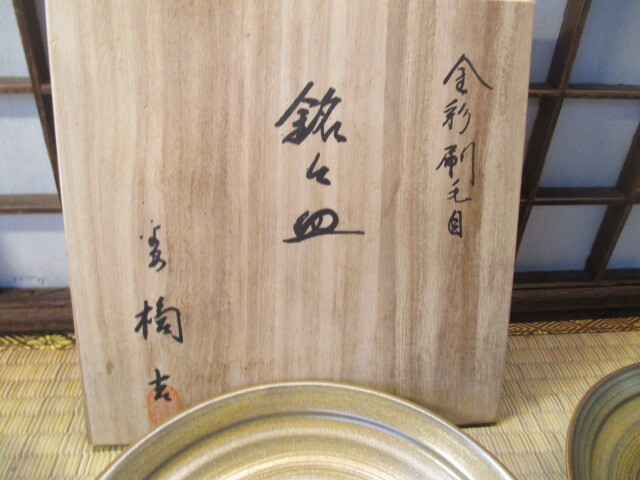 金彩刷毛目
銘々皿
橘吉